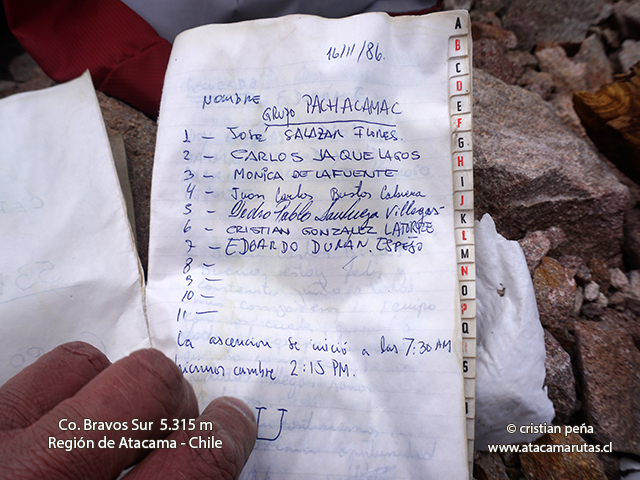 16/11/86.
NOMBRE
GRUPO PACHACAMAC
1 - JOSE SALAZAR FLORES.
2 - CARLOS JAQUE LAGOS
3 - MONICA DE LA FUENTE
4 - Juan Carlos Bustos Cabrera
5 - Pedro Pablo Villegas
6 - CRISTIAN GONZALEZ LATORRE
7 - EDGARDO DURAN. ESPEJO
8 -
9 -
10 -
11 -
La ascencion se inició a las 7:30 AM
hicimos cumbre 2:15 PM.
A
B
C
D
E
F
G
H
I
J
K
L
M
N
O
P
Q
S
I
Co. Bravos Sur 5.315 m
Región de Atacama - Chile
© cristian peña
www.atacamarutas.cl